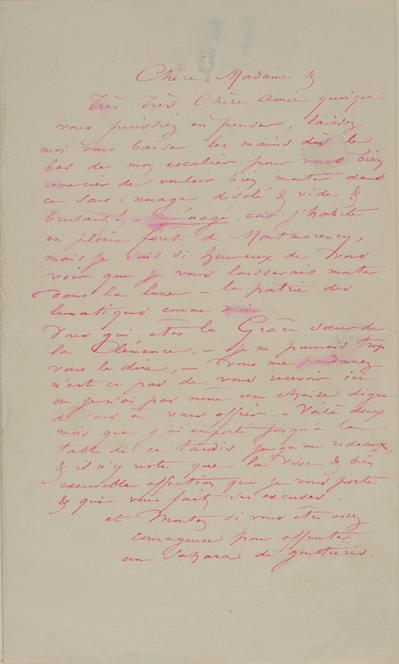 Chère Madame &
Très Très Chère Amie quoique
vous puissiez en penser, laissez
moi vous baiser les mains dès le
bas de mon escalier pour vous bien
remercier de vouloir bien monter dans
ce sous-nuage désolé & vide &
brulant! – car j'habite
en plein forêt de Montmorency,
mais je suis si heureux de vous
voir que je vous laisserais monter
dans la lune – la patrie des
lunatiques comme
Vous qui êtes la Grâce soeur de
la Clémence, – je ne pourrais trop
vous le dire, – vous me pardonnez
n'est ce pas de vous recevoir ici
ou je n'ai pas même une chaise digne
de vous à vous offrir. – Voilà deux
mois que j'ai emporté jusqu'à la
table de ce taudis jusqu'au rideaux,
& il n'y reste que la vive & bien
excusable affection que je vous porte
& qui vous fait ses excuses.
et Montez si vous êtes assez
courageuse pour affronter
un Sahara de gouttières.